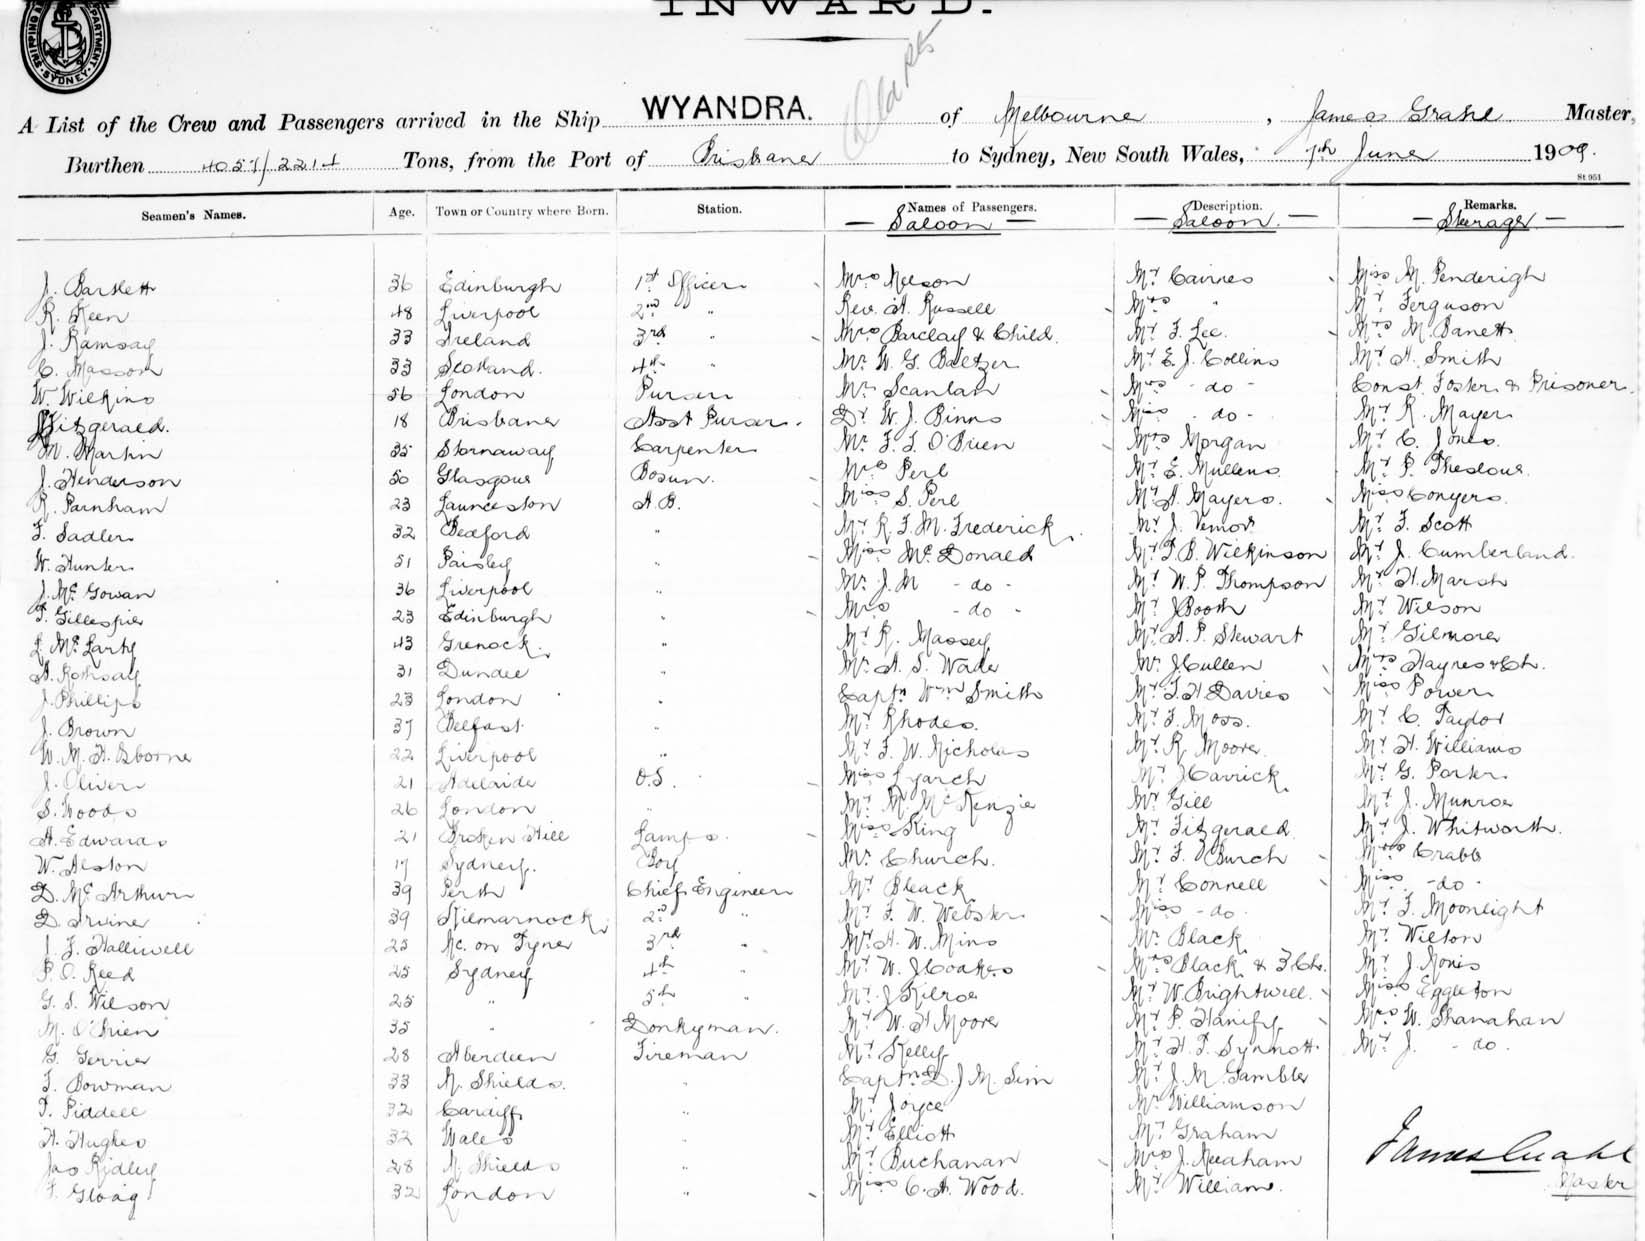 INWARD.
SHIPPING DEPARTMENT SYDNEY
A List of the Crew and Passengers arrived in the Ship WYANDRA. of Melbourne, James Grahl Master,
Burthen 4057/2211 Tons, from the Port of Brisbane to Sydney, New South Wales, 7th June 1909.
St 951
Seamen's Names. Age. Town or Country where Born. Station. Names of Passengers. Description. Remarks.
Saloon Saloon. Steerage
J. Bartlett 36 Edinburgh 1st Officer Mrs Nelson Mr Cairnes Miss M. Penderigh
R. Keen 48 Liverpool 2nd " Rev. A. Russell Mrs " Mr Ferguson
J. Ramsay 33 Ireland 3rd " Mrs Barclay & Child. Mr F. Lee. Mrs M. Banett
C. Masson 33 Scotland. 4th " Mr W. G. Baltzer Mr E. J. Collins Mr A. Smith
W. Wilkins 56 London Purser Mr Scanlan Mrs - do - Const. Foster & Prisoner.
Fitzgerald. 18 Brisbane Asst Purser. Dr W. J. Binns Miss - do - Mr R. Mayer
M. Martin 35 Stornaway Carpenter Mr F. J. O'Brien Mrs Morgan Mr C. Jones.
J. Henderson 50 Glasgow Bosun. Mrs Perl Mr E. Mullens
R. Parnham 23 Launceston A.B. Miss S. Perl Mr A. Mayers. Miss Conyers.
F. Sadler 32 Bedford " Mr R. F. M. Frederick. Mr J. Mr F. Scott
W. Hunter 51 Paisley " Miss McDonald Mr F. B. Wilkinson Mr J. Cumberland.
J. McGowan 36 Liverpool " Mr J. M - do - Mr W. P. Thompson Mr H. Marsh
T. Gillespie 23 Edinburgh " Mrs - do - Mr J Booth Mr Wilson
L. McLarty 43 Grenock. " Mr R. Massey Mr A. P. Stewart Mr Gilmore
A. Rothsay 31 Dundee " Mr A. S. Wade Mr J Cullen Mrs Haynes & Ch.
J. Phillips 23 London " Captn Wm Smith Mr F. H Davies Miss Power
J. Brown 37 Belfast " Mr Rhodes. Mr F. Moss. Mr C. Taylor
W. M. H. Osborne 22 Liverpool " Mr F. W. Nicholas Mr R. Moore. Mr H. Williams
J. Oliver 21 Adelaide O.S. Miss Mr J Carrick. Mr G. Porter
S. Woods 26 London " Mr M. McKenzie Mr Gill Mr J. Munroe
A. Edwards 21 Broken Hill Lamps. Miss King Mr Fitzgerald. Mr J. Whitworth.
W. Alston 17 Sydney. Boy Mr Church. Mr F. Church Mrs Crabb
D. McArthur 39 Perth Chief Engineer Mr Black Mr Connell Miss - do -
D. Irvine 39 Kilmarnock. 2nd " Mr F. W. Webster Miss - do - Mr F. Moonlight
J. F. Halliwell 25 Nc. on Tyne 3rd " Mr H. W. Mins Mr Black Mr Wilton
P. O. Reed 25 Sydney 4th " Mr W. J Coakes Mrs Black & 3 Ch. Mr J.
G. S. Wilson 25 " 5th " Mr J Kilroe Mr W. Brightwell. Miss Eggleton
M. O'Brien 35 " Donkyman. Mr W. H Moore Mr P. Hanify Mrs W. Shanahan
G. Gerrie 28 Aberdeen Fireman Mr Kelly Mr H. F. Synnott. Mr J. - do.
F. Bowman 33 N. Shields. " Captn D. J. M. Sim Mr J. M. Gambler
T. Piddell 32 Cardiff " Mr Joyce Mr Williamson
H. Hughes 32 Wales " Mr Elliott Mr Graham
Jas Ridley 28 N. Shields " Mr Buchanan Mrs J. Meaham
F. Gloag 32 London " Miss C. A. Wood. Mr William.
James Grahl
Master